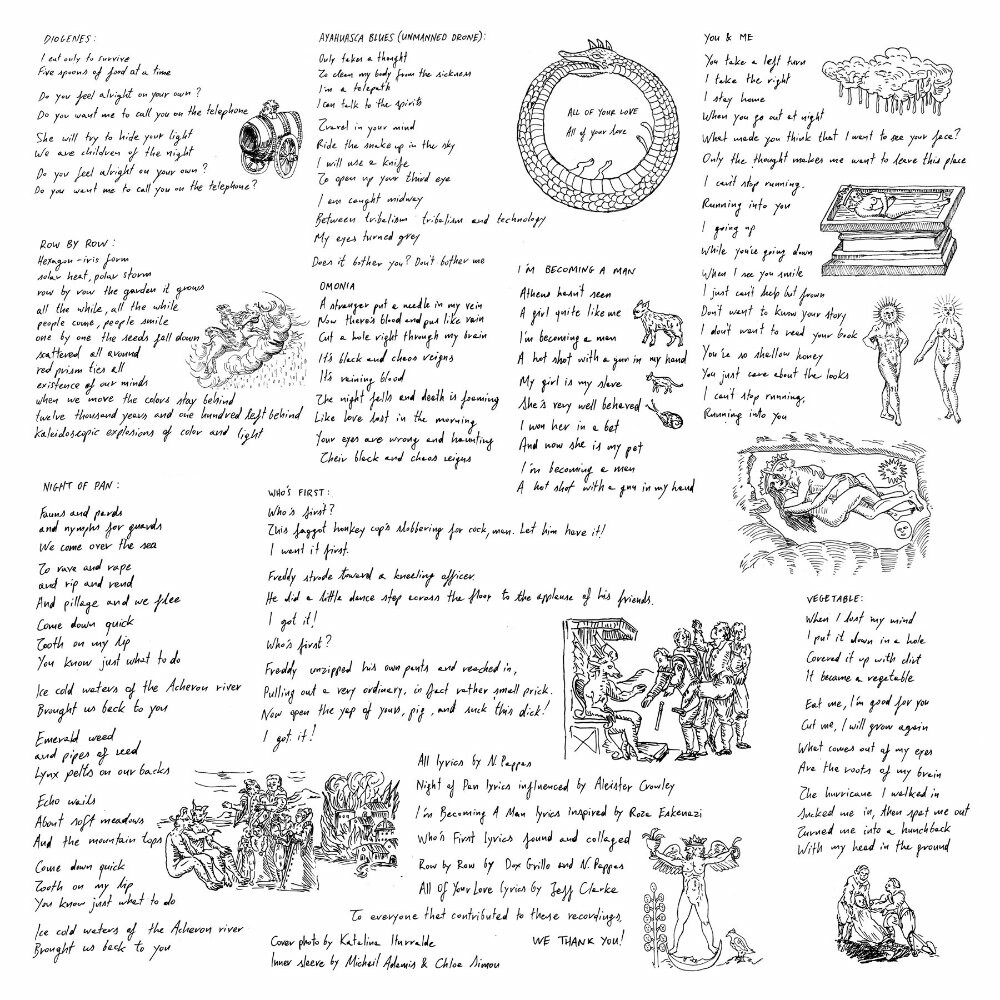 DIOGENES:
I eat only to survive
Five spoons of food at a time
Do you feel alright on your own?
Do you want me to call you on the telephone
She will try to hide your light
We are children of the night
Do you feel alright on your own?
Do you want me to call you on the telephone?
ROW BY ROW:
Hexagon-iris form
solar heat, polar storm
row by row the garden it grows
all the while, all the while
people come, people smile
one by one the seeds fall down
scattered all around
red prism ties all
existence of our minds
when we move the colors stay behind
twelve thousand years and one hundred left behind
kaleidoscopic explosions of color and light
NIGHT OF PAN:
Fauns and pards
and nymphs for guards
We come over the sea
To rave and rape
and rip and rend
And pillage and we flee
Come down quick
Tooth on my lip
You know just what to do
Ice cold waters of the Acheron river
Brought us back to you
Emerald weed
and pipes of reed
Lynx pelts on our backs
Echo wails
About soft meadows
And the mountain tops
Come down quick
Tooth on my lip
You know just what to do
Ice cold waters of the Acheron river
Brought us back to you
AYAHUASCA BLUES (UNMANNED DRONE):
Only takes a thought
To clean my body from the sickness
I'm a telepath
I can talk to the spirits
Travel in your mind
Ride the snake up in the sky
I will use a knife
To open up your third eye
I am caught midway
Between tribalism tribalism and technology
My eyes turned grey
Does it bother you? Don't bother me
OMONIA
A stranger put a needle in my vein
Now there's blood and pus like rain
Cut a hole right through my brain
It's black and chaos reigns
It's raining blood
The night falls and death is foaming
Like love lost in the morning
Your eyes are wrong and haunting
Their black and chaos reigns
WHO'S FIRST:
Who's first?
This faggot honkey cop's slobbering for cock, man. Let him have it!
I want it first.
Freddy strode toward a kneeling officer.
He did a little dance step across the floor to the applause of his friends.
I got it!
Who's first?
Freddy unzipped his own pants and reached in,
Pulling out a very ordinary, in fact rather small prick.
Now open the yap of yours, pig, and suck this dick!
I got it!
ALL OF YOUR LOVE
All of your love
I'M BECOMING A MAN
Athens hasn't seen
A girl quite like me
I'm becoming a man
A hot shot with a gun in my hand
My girl is my slave
She's very well behaved
I won her in a bet
And now she is my pet
I'm becoming a man
A hot shot with a gun in my hand
YOU & ME
You take a left turn
I take the right
I stay home
When you go out at night
What made you think that I want to see your face?
Only the thought makes me want to leave this place
I can't stop running.
Running into you
I going up
While you're going down
When I see you smile
I just can't help but frown
Don't want to know your story
I don't want to read your book
You're so shallow honey
You just care about the looks
I can't stop running.
Running into you
VEGETABLE:
When I lost my mind
I put it down in a hole
Covered it up with dirt
It became a vegetable
Eat me, I'm good for you
Cut me, I will grow again
What comes out of my eyes
Are the roots of my brain
The hurricane I walked in
Sucked me in, then spat me out
Turned me into a hunchback
With my head in the ground
All lyrics by N. Pappas
Night of Pan lyrics influenced by Aleister Crowley
I'm Becoming A Man lyrics inspired by Roza Eskenazi
Who's First lyrics found and collaged
Row by Row by Dox Grillo and N. Pappas
All Of Your Love lyrics by Jeff Clarke
To everyone that contributed to these recordings,
WE THANK YOU!
Cover photo by Katalina Iturralde
Inner sleeve by Michail Adamis & Chloe Simou